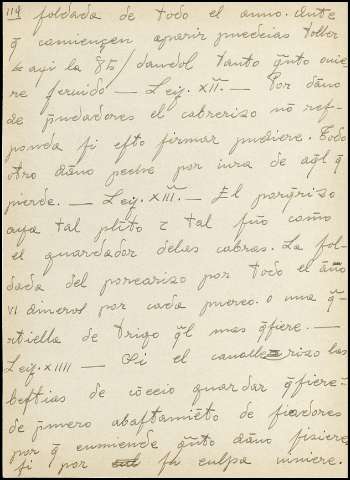 119 soldada de todo el anno. Ante
q̄ comiençen a parir puedeias toller
⁊ aqui la 85/ dandol tanto q̄nto ouie
re seruido — Ley. XII. — Por dāno
de p̄udadores el cabrerizo nō res-
ponda si esto firmar pudiere. Todo
otro dāno peche por iura de aq̄l q̄
pierde. — Ley. XIII. — El porq̄rizo
aya tal pl̄ito ⁊ tal fūo com̄o
el guardador delas cabras. La sol-
dada del porcarizo por todo el āno
VI dineros por cada puerco. o una q̄-
rtiella de trigo q̄l mas q̄siere. —
Ley. XIIII — Si el cauallerizo las
bestias de cōceio guardar q̄siere
de p̄mero abastamiēto de fiadores
por q̄ enmiende q̄nto dāno fiziere
si por su culpa uiniere.